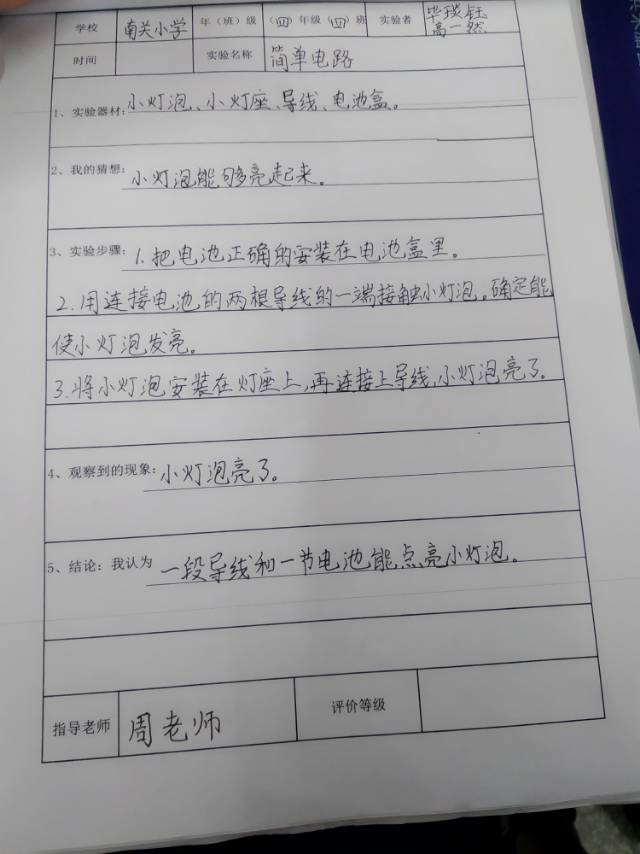 学校 南关小学 年（班）级 （四）年级（四）班 实验者 毕琰钰
高一然
时间 实验名称 简单电路
1、实验器材：小灯泡、小灯座、导线、电池盒。
2、我的猜想：小灯泡能够亮起来。
3、实验步骤：1.把电池正确的安装在电池盒里。
2.用连接电池的两根导线的一端接触小灯泡。确定能
使小灯泡发亮。
3.将小灯泡安装在灯座上，再连接上导线，小灯泡亮了。
4、观察到的现象：小灯泡亮了。
5、结论：我认为 一段导线和一节电池能点亮小灯泡。
指导老师 周老师 评价等级